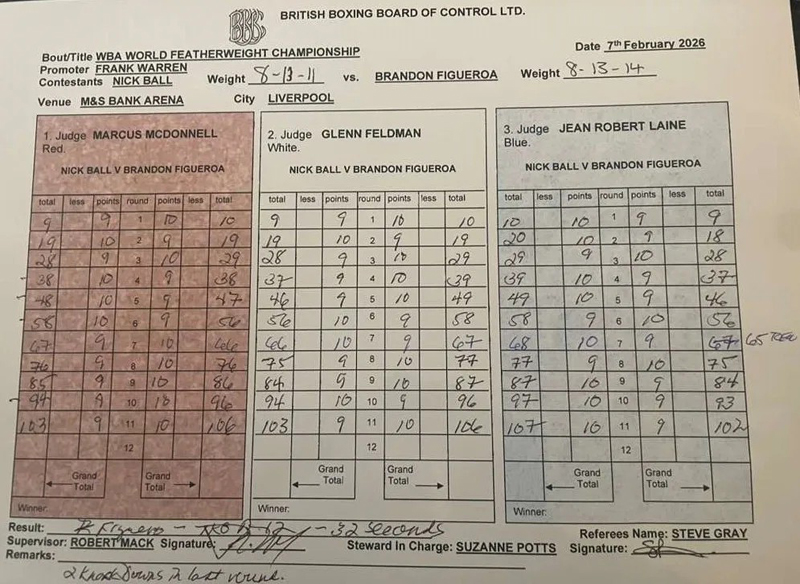 BRITISH BOXING BOARD OF CONTROL LTD.
Bout/Title WBA WORLD FEATHERWEIGHT CHAMPIONSHIP Date 7th February 2026
Promoter FRANK WARREN
Contestants NICK BALL Weight 8-13-11 vs. BRANDON FIGUEROA Weight 8-13-14
Venue M&S BANK ARENA City LIVERPOOL
1. Judge MARCUS MCDONNELL 2. Judge GLENN FELDMAN 3. Judge JEAN ROBERT LAINE
Red. White. Blue.
NICK BALL V BRANDON FIGUEROA NICK BALL V BRANDON FIGUEROA NICK BALL V BRANDON FIGUEROA
total less points round points less total total less points round points less total total less points round points less total
9 9 1 10 10 9 9 1 10 10 10 10 1 9 9
19 10 2 9 19 19 10 2 9 19 20 10 2 9 18
28 9 3 10 29 28 9 3 10 29 29 9 3 10 28
38 10 4 9 38 37 9 4 10 39 39 10 4 9 37
48 10 5 9 47 46 9 5 10 49 49 10 5 9 46
58 10 6 9 56 56 10 6 9 58 58 9 6 10 56
67 9 7 10 66 66 10 7 9 67 68 10 7 9 67 65
76 9 8 10 76 75 9 8 10 77 77 9 8 10 75
85 9 9 10 86 84 9 9 10 87 87 10 9 9 84
94 9 10 10 96 94 10 10 9 96 97 10 10 9 93
103 9 11 10 106 103 9 11 10 106 107 10 11 9 102
12 12 12
Grand Total Grand Total Grand Total Grand Total Grand Total Grand Total
Winner: Winner: Winner:
Result: B Figueroa - TKO R-12 - 32 seconds Referees Name: STEVE GRAY
Supervisor: ROBERT MACK Signature: Steward In Charge: SUZANNE POTTS Signature:
Remarks: 2 knockdowns in last round.